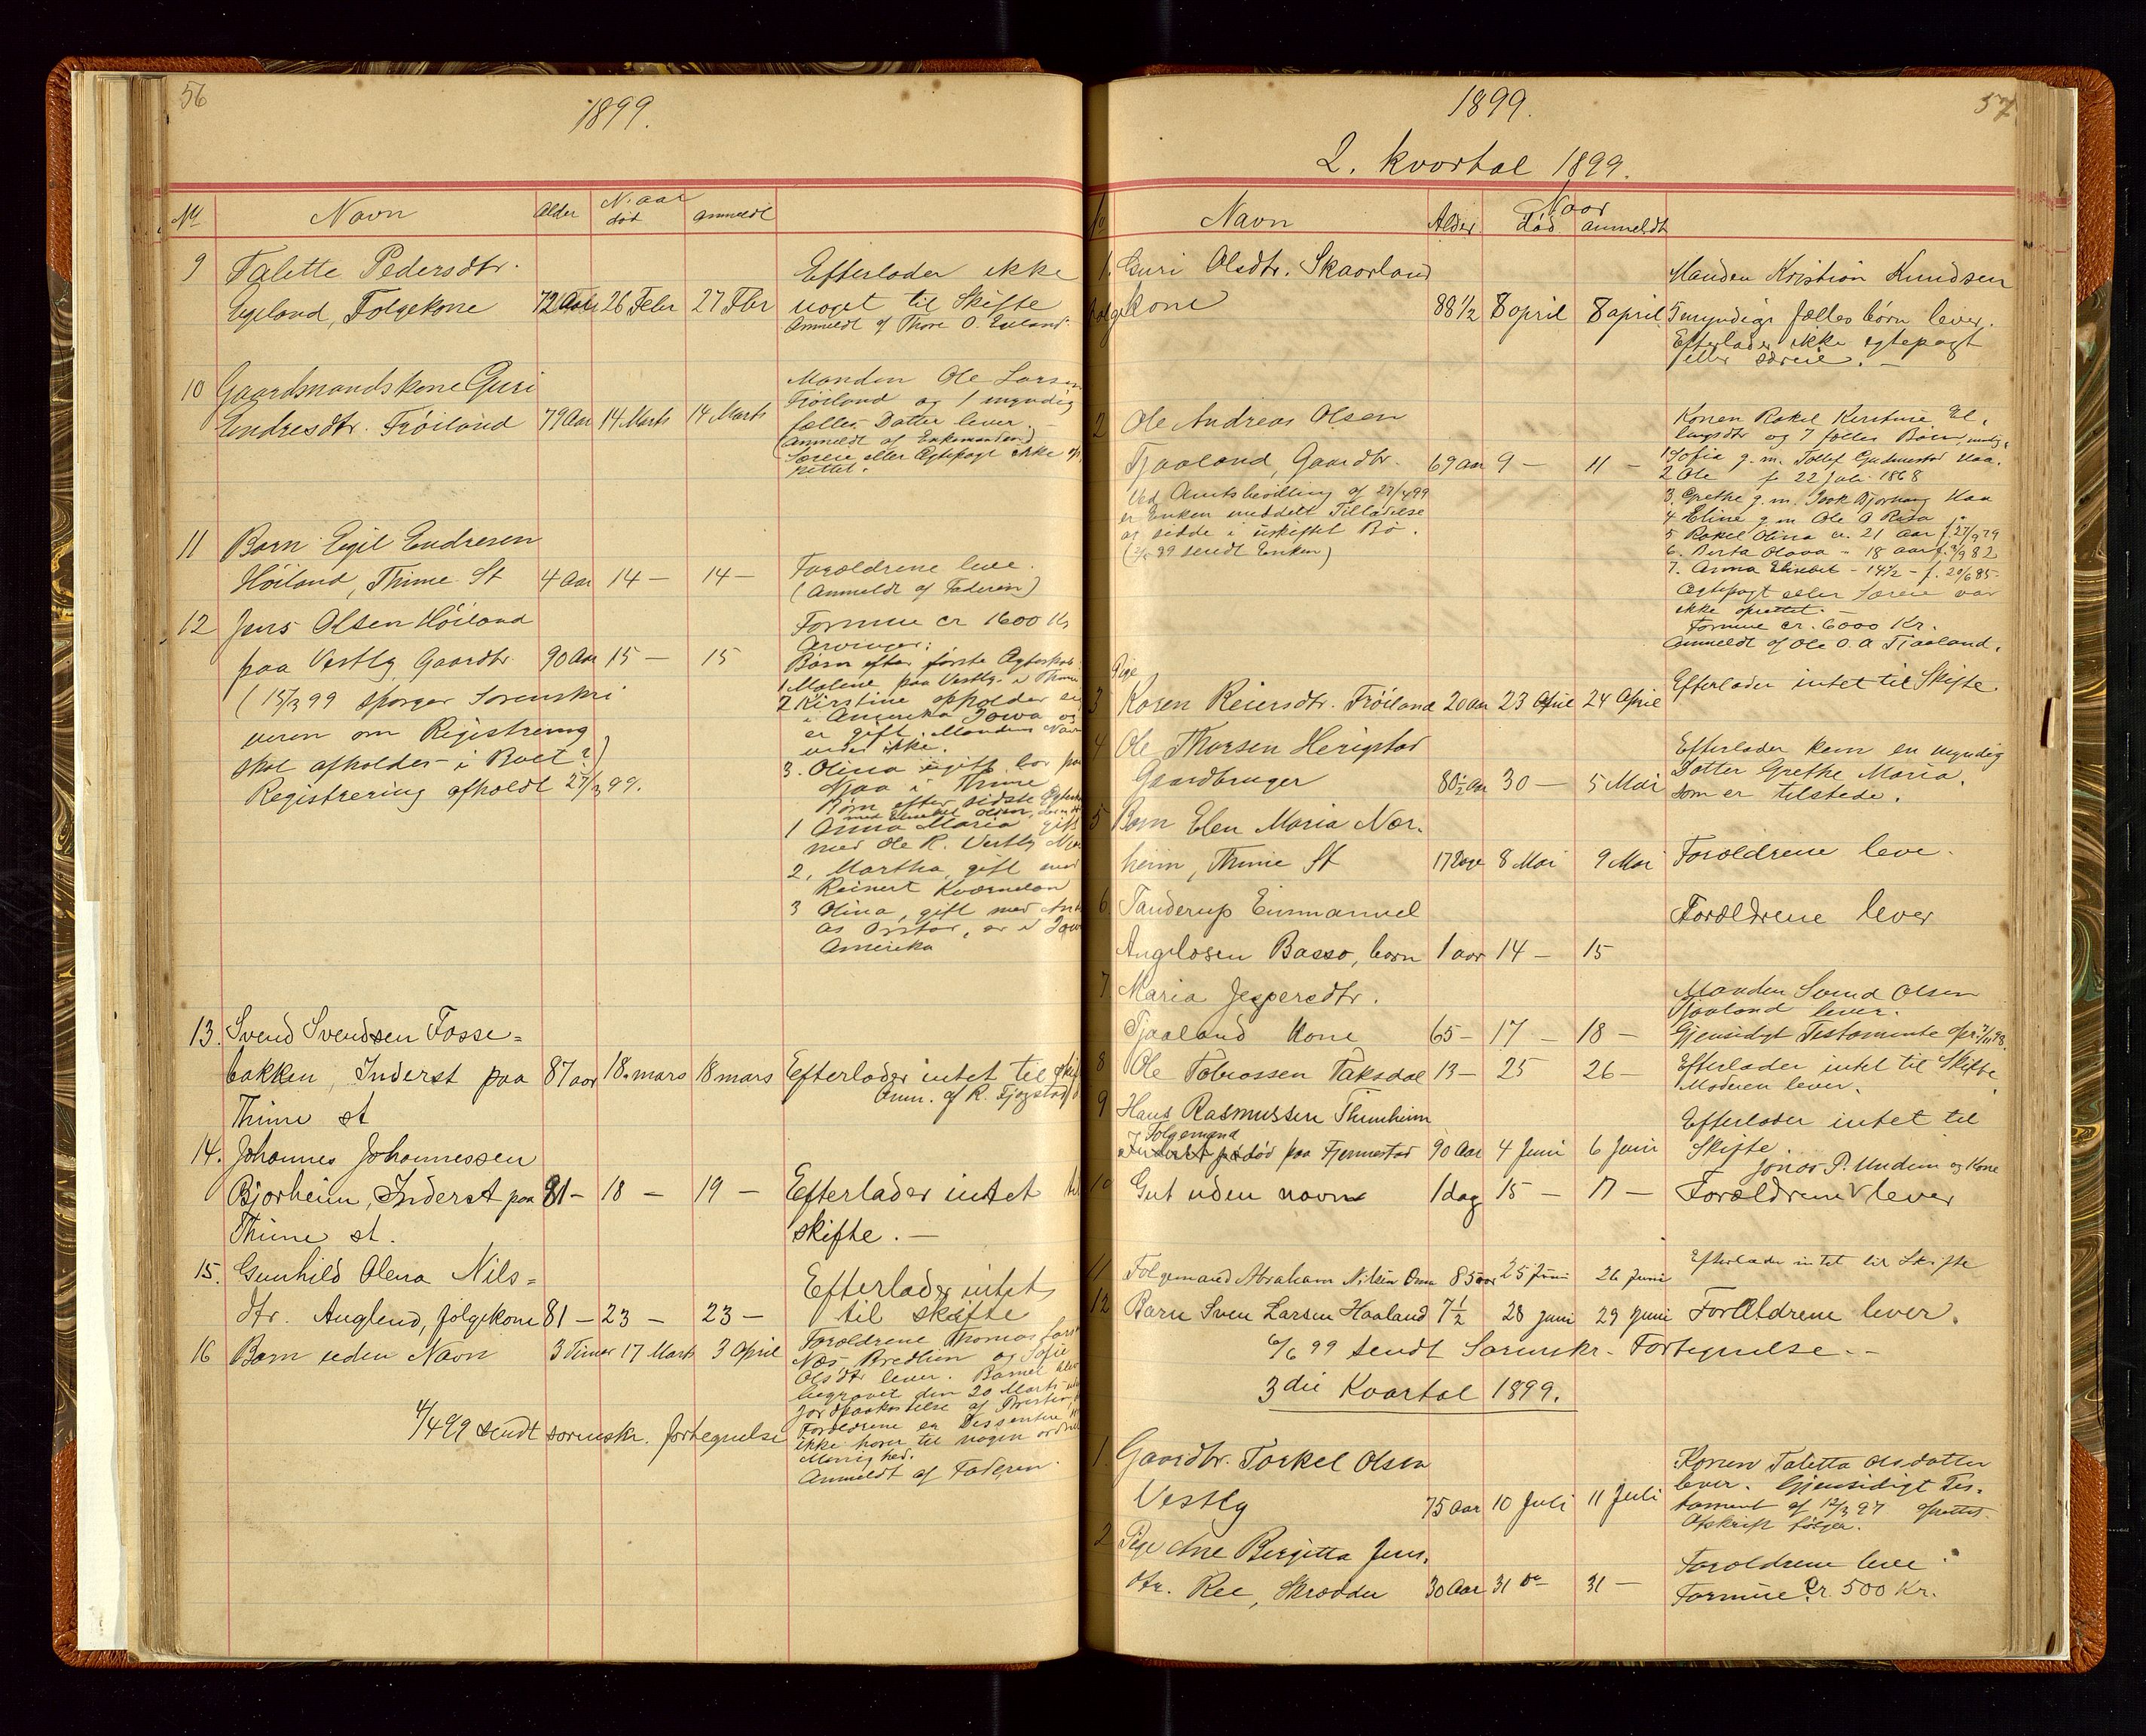 56
1899.
No Navn Alder Naar død anmeldt
9 Talette Pedersdtr.
Egeland, Folgekone 72 Aar 26 Febr 27 Fbr
Efterlader ikke
noget til Skifte
Anmeldt af Thore O.
10 Gaardmandskone Guri
Endresdtr. Frøiland 79 Aar 14 Marts 14 Marts
Manden Ole Larsen
Frøiland og 1 myndig
fælles Datter lever. -
(anmeldt af Enkemanden)
Særeie eller Ægtepagt ikke op
rettet.
11 Barn Egil Endresen
Høiland, Thime St 4 Aar 14 - 14 -
Forældrene leve.
(Anmeldt af Faderen)
12 Jens Olsen Høiland
paa Vestly Gaardbr. 90 Aar 15 - 15
(15/3 99 spørger Sorenskri
veren om Registrering
skal afholdes i Boet?)
Registrering afholdt 27/3 99.
Formue cr 1600 Kr
Arvinger:
Børn efter første Ægteskab:
1 Malene paa Vestly i Thime
2 Kirstine opholder sig
i Amerika Iowa og
er gift. Mandens Navn
vides ikke.
3. Olina ugift bor paa
Njaa i Thime
Børn efter sidste Ægtesk
med Olsen,
1 Anna Maria gift
med Ole R. Vestly
2, Martha, gift med
Reinert Kværneland
3 Olina, gift med
as , er i Iowa
Amerika
13. Svend Svendsen Fosse=
bakken, Inderst paa 87 aar 18. mars 18 mars
Thime st
Efterlader intet til skif
Anm. af R. Fjogstad
14. Johannes Johannessen
Bjorheim, Inderst paa 81 - 18 - 19 -
Thime st.
Efterlader intet til
skifte. -
15. Gunhild Olena Nils=
dtr. Auglend, folgekone 81 - 23 - 23 -
Efterlader intet
til skifte
16 Barn uden Navn 3 Timer 17 Marts 3 April
Forældrene Thomas Lars
Næs, Bredlien og Sofie
Olsdtr lever. Barnet blev
begravet den 20 Marts
Jordpaakastelse af Presten,
Forældrene er Dissentere
ikke hører til nogen ordnet
Menighed.
Anmeldt af Faderen.
4/4 99 sendt sorenskr. fortegnelse
57
1899.
2. kvartal 1899.
No Navn Alder Naar død anmeldt
1. Guri Olsdtr. Skaarland
folgekone 88 1/2 8 april 8 april
Manden Kristian Knudsen
5 myndige fælles børn lever.
Efterlader ikke egtepagt
eller særeie. -
2 Ole Andreas Olsen
Tjaaland, Gaardbr. 69 aar 9 - 11 -
Ved Amtsbevilling af 27/4 99
er Enken meddelt Tilladelse
at sidde i uskiftet Bo.
(2/5 99 sendt Enken)
Konen Rakel Kirstine El
lingsdtr og 7 fælles Børn
1 Sofia g. m. Tollef Gudmestad Naa
2 Ole f. 22 Juli 1868
3. Grethe g. m. Isak Bjorhaug Naa
4 Eline g m Ole A Risa
5 Rakel Olina cr. 21 aar f. 27/9 79
6. Berta Olava - 18 aar f. 9/9 82
7. Anna Elisabet - 14 1/2 - f. 20/6 85
Ægtepagt eller Særeie var
ikke oprettet. -
Formue cr. 6000 Kr.
Anmeldt af Ole O. A Tjaaland.
Pige
3 Karen Reiersdtr. Frøiland 20 aar 23 April 24 April
Efterlader intet til Skifte
4 Ole Thorsen Herigstad
Gaardbruger 80 1/2 aar 30 - 5 Mai
Efterlader kun en myndig
Datter Grethe Maria
som er tilstede.
5 Barn Elen Maria Nær-
heim, Thime St 17 Dage 8 Mai 9 Mai
Forældrene leve.
6 Tanderup Emmanuel
Angelosen Basso, barn 1 aar 14 - 15
Forældrene lever
7. Maria Jespersdtr.
Tjaaland Kone 65 - 17 - 18 -
Manden Svend Olsen
Tjaaland lever.
Gjensidigt Testamente opr. 7/11 98.
8 Ole Tobiassen Taksdal 13 - 25 26 -
Efterlader intet til Skifte
Moderen lever.
9 Hans Rasmussen Thunheim
Folgemand
Inderst død paa Fjermestad 90 Aar 4 Juni 6 Juni
Efterlader intet til
Skifte
10 Gut uden navn 1 dag 15 - 17 -
Jonas P. Undem og Kone
Forældrene lever
11 Folgemand Abraham Nilsen 85 aar 25 Juni 26 Juni
Efterlader intet til Skifte
12 Barn Sven Larsen Haaland 7 1/2 28 juni 29 juni
Forældrene lever.
6/6 99 sendt Sorenskr. Fortegnelse. -
3die Kvartal 1899.
1. Gaardbr. Torkel Olsen
Vestly 75 Aar 10 Juli 11 Juli
Konen Taletta Olsdatter
lever. Gjensidigt Tes-
tament af 12/3 97 oprettet.
Afskrift følger.
2 Pige Ane Bergitta Jens-
dtr. Ree, Skrædder 30 Aar 31 do 31 -
Forældrene leve
Formue Cr. 500 Kr.